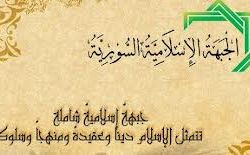 الجبهة الإسلامية السورية
جبهة إسلامية شاملة
تتمثل الإسلام ديناً وعقيدة ومنهجاً وسلوك